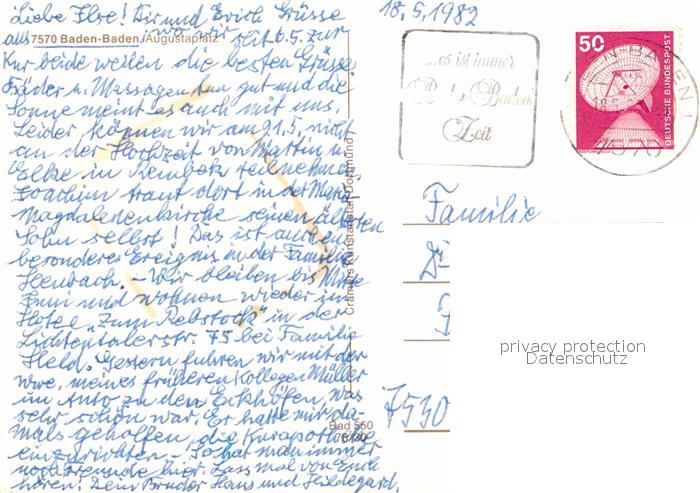 18.5.1982
Liebe Else! Dir und Erich Grüsse
aus 7570 Baden-Baden, Augustaplatz
wo wir seit 6.5. zur
Kur beide weilen die besten Grüsse.
Bäder u. Massagen tun gut und die
Sonne meint es auch mit uns.
Leider können wir am 21.5. nicht
an der Hochzeit von Martin u.
Elke in Reinbek teilnehmen.
Joachim traut dort in der Maria
Magdalenenkirche seinen ältesten
Sohn selbst! Das ist auch ein
besonderes Ereignis in der Familie
. – Wir bleiben bis Mitte
Juni und wohnen wieder im
Hotel "Zum Rebstock" in der
Lichtentalerstr. 75 bei Familie
Held. Gestern fuhren wir mit der
Wwe. meines früheren Kollegen Müller
im Auto zu den Eckhöfen, was
sehr schön war. Er hatte mir da-
mals geholfen, die Kurapotheke
einzurichten. – So hat man immer
noch Freunde hier. Lass mal von Euch
hören! Dein Bruder Hans und Hildegard.
...es ist immer
Baden-Baden
Zeit
50
DEUTSCHE BUNDESPOST
BADEN-BADEN 1
18.5.
7570
Cramers Kunstanstalt Dortmund
Familie
7530
Bad 550
privacy protection
Datenschutz